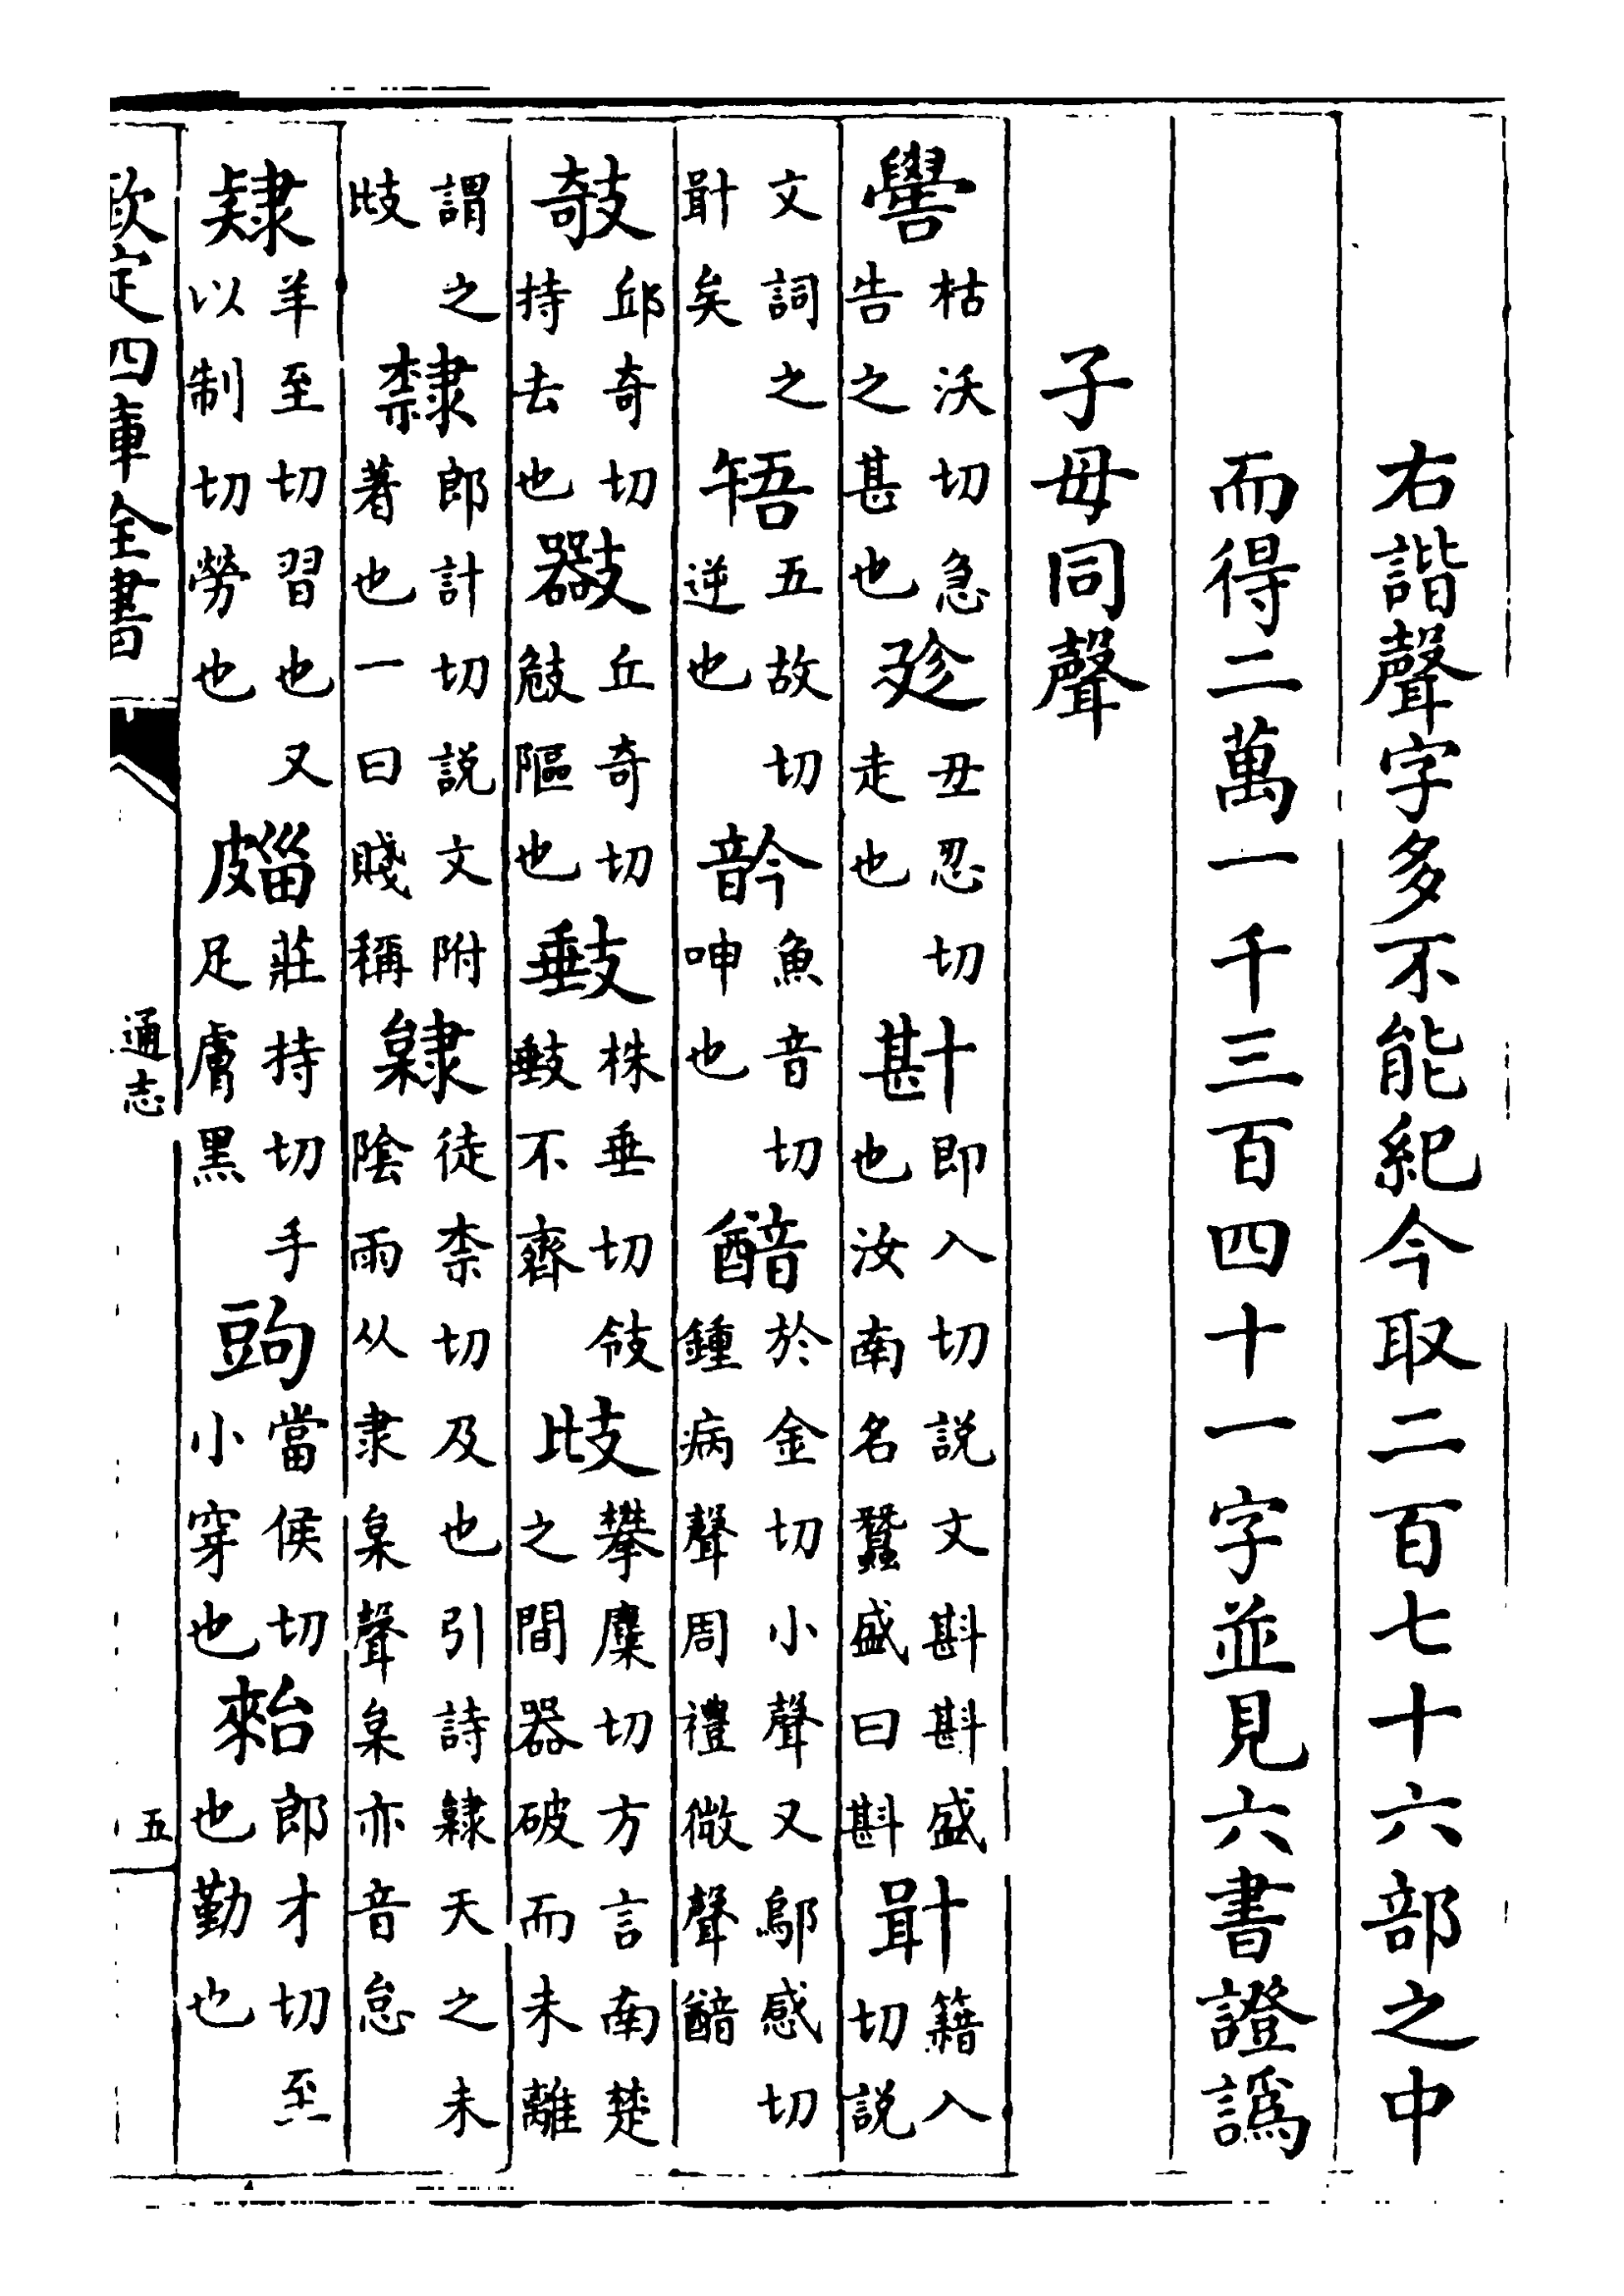 右諧聲字多不能紀今取二百七十六部之中
而得二萬一千三百四十一字並見六書證譌
子母同聲
嚳枯沃切急告之甚也丑忍切走也卙即入切説文斟斟盛也汝南名蠶盛曰斟𠦫籍入切説
文詞之𠦫矣啎五故切逆也䪩魚音切呻也韽於金切小聲又鄔感切鍾病聲周禮微聲韽
攲邱奇切持去也丘奇切䧢也株垂切不齊攀糜切方言南楚之間器破而未離
謂之隸郎計切説文附著也一曰賤稱徒柰切及也引詩天之未陰雨从隶枲聲枲亦音怠
肄羊至切習也又以制切勞也莊持切手足膚黑當侯切小穿也郎才切至也勤也
欽定四庫全書
通志
五